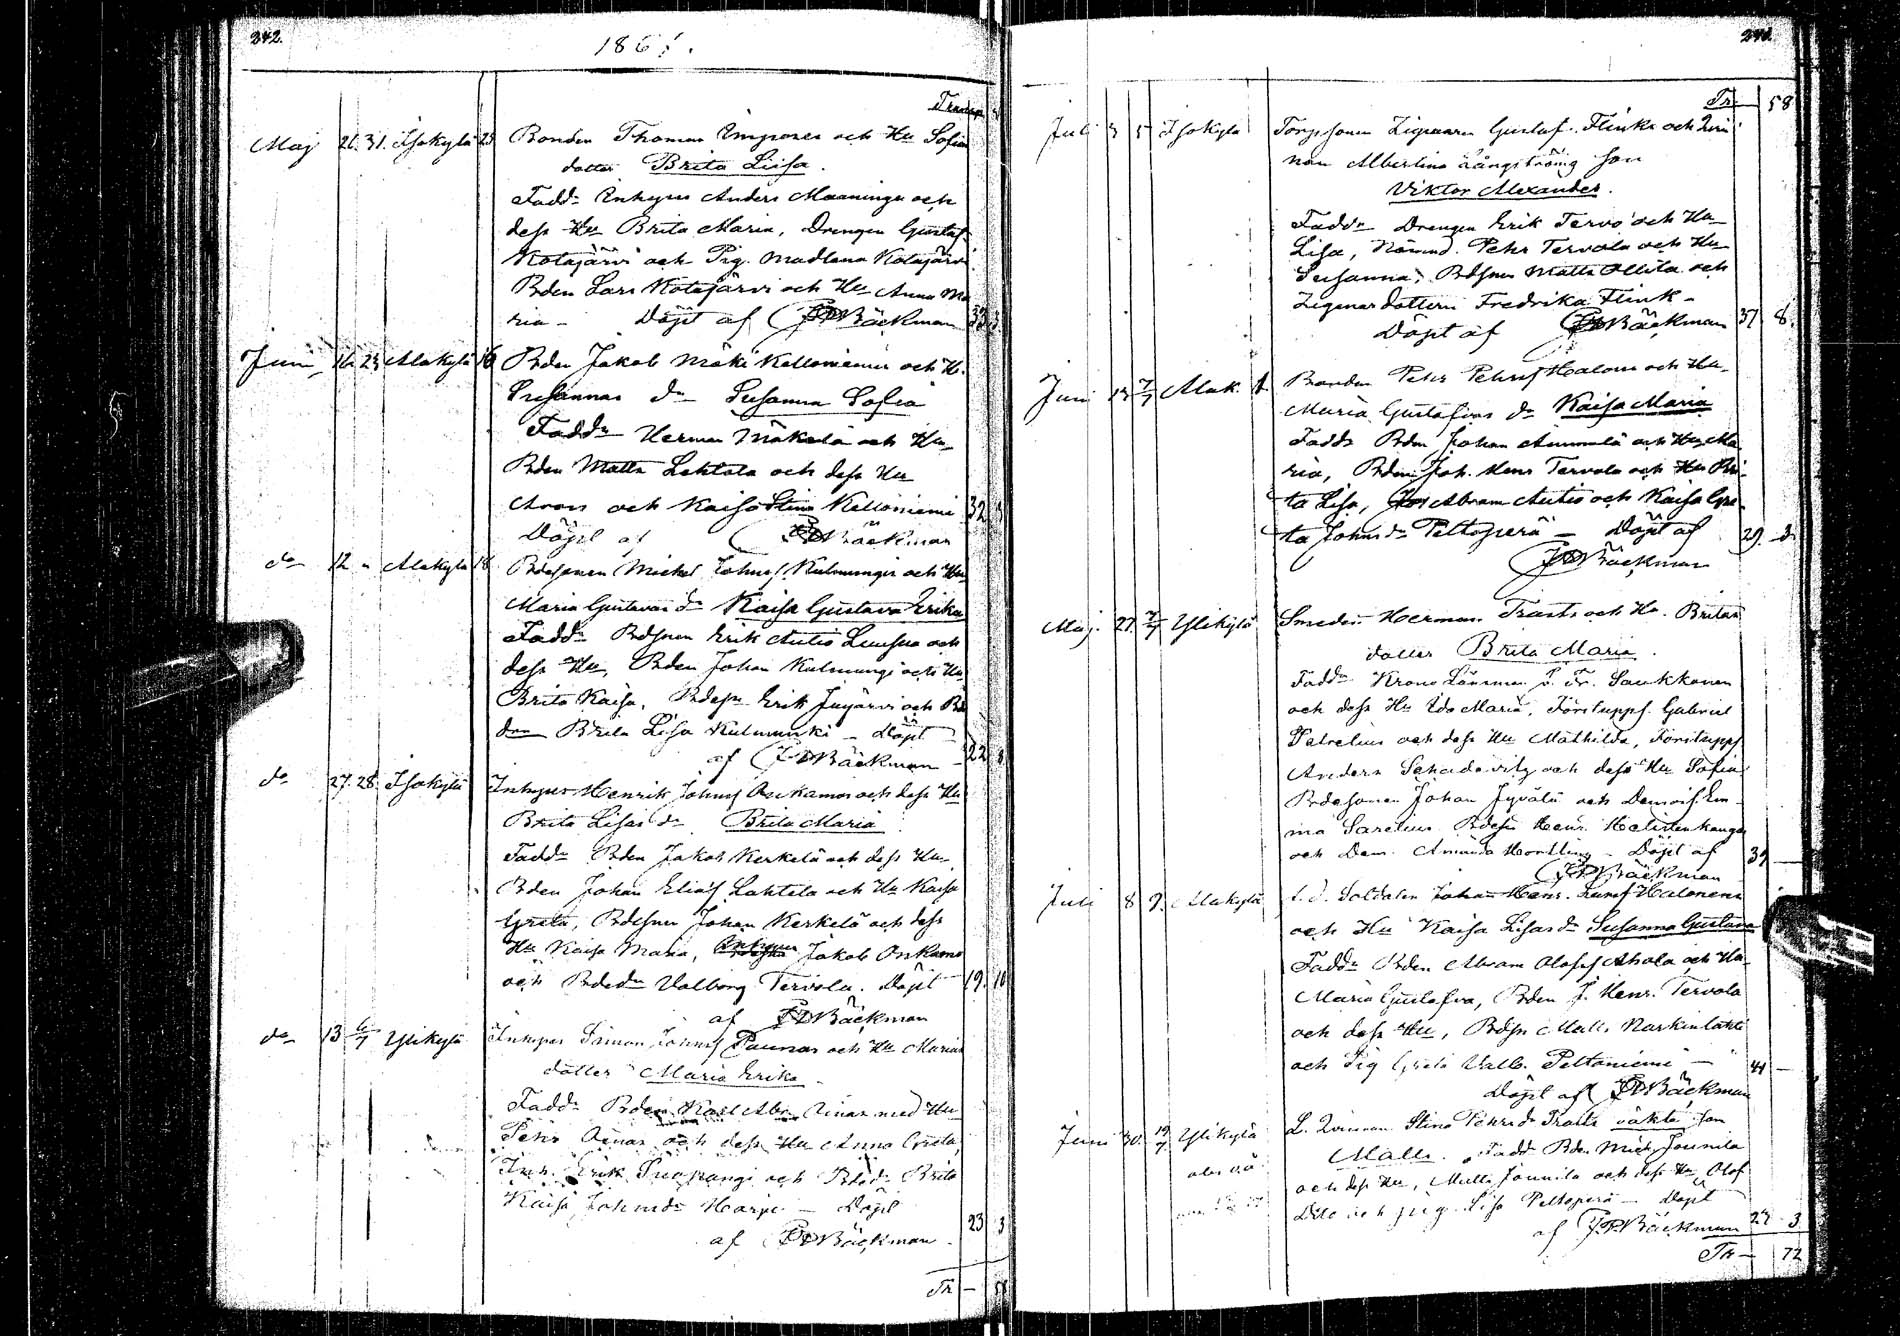 242.
1867.
Transp.
Maj 26. 31. Isokylä 23 Bonden Thomas Emgrones och Hu Sofias
dotter Brita Lisa.
Faddr Inhyses Anders Maaninga och
dess Hu Brita Maria, Drengen Gustaf
Kotajärvi och Pig. Madlena Kotajärvi
Bden Lars Kotajärvi och Hu Anna Ma
ria - Döpt af JDBäckman 33 3
Juni 16 23 Alakylä 16 Bden Jakob Mäki Kelloniemi och H.
Susannas dr Susanna Sofia
Faddr Herman Mäkelä och Hu
Bden Matts Lehtola och dess Hu
Aron och Kaisa Stina Kelloniemi 32
Döpt af JDBäckman
do 12 " Alakylä 18 Bdesonen Michel Johns Kulmungi och Hu
Maria Gustavas dr Kaisa Gustava Erika
Faddr Bdsonen Erik Autio Luusua och
dess Hu, Bden Johan Kulmungi och Hu
Brita Kaisa, Bdesn Erik Jujärvi och Bde
drn Brita Lisa Kulmunki - Döpt
af JDBäckman 22 8
do 27. 28. Isokylä Inhyses Henrik Johns Onkamo och dess Hu
Brita Lisas dr Brita Maria
Faddr Bden Jakob Kerkelä och dess Hu
Bden Johan Elias Lahtela och Hu Kaisa
Greta, Bdesonen Johan Kerkelä och dess
Hu Kaisa Maria, Inhyses Jakob Onkamo
och Bdedr Valborg Tervola. Döpt 19. 10
af JDBäckman
do 13 6/7 Ylikylä Inhyses Simon Johns Paunas och Hu Marias
dotter Maria Erika
Faddr Bden Karl Abr. Oinas med Hu
Pehr Oinas och dess Hu Anna Greta,
Inh. Erik Suopangi och Bdedr Brita
Kaisa Johnsdr Harju - Döpt
af JDBäckman 23 3
Tr - 58
243.
Tr - 58
Juli 3 5 Isokylä Torpsonen Zigenaren Gustaf Flinks och Qvin
nan Albertina Långströms son
Viktor Alexander.
Faddr Drengen Erik Tervo och Hu
Lisa, Nämnd. Pehr Tervola och Hu
Susanna, Bdsonen Matts Ollila och
Zigenardottern Fredrika Flink -
Döpt af JDBäckman 37 8.
Juni 13 7/7 Alak. Bonden Pehr Pehrs Halonen och Hu
Maria Gustafvas dr Kaisa Maria
Faddr Bden Johan Ammmelä och Hu Ma
ria, Bden Joh. Henr Tervola och Hu Bri-
ta Lisa, Abram Autio och Kaisa Gre-
ta Johnsdr Peltoperä - Döpt af 29.
JDBäckman
Maj. 27. 7/7 Ylikylä Smeden Herman Trasts och Hu Britas
dotter Brita Maria.
Faddr Krono Länsman Fr. Saukkonen
och dess Hu Ida Maria, Förstupps. Gabriel
Petrelius och dess Hu Mathilda, Förstupps
Anders Schadevitz och dess Hu Sofia
Bdesonen Johan Jyvälä och Demois. Em-
ma Sarelius Bdesn Henr. Helistenkangas
och Dem. Amanda Hortling - Döpt af 39 -
JDBäckman
Juli 8 9. Alakylä f.d. Soldaten Johan Henr. Larss Halonens
och Hu Kaisa Lisas dr Susanna Gustava
Faddr Bden Abram Olofs Ahola och Hu
Maria Gustafva, Bden J. Henr. Tervola
och dess Hu, Bdsn Matts Narkinlahti
och Pig Greta Valb. Peltoniemi - 41 -
Döpt af JDBäckman
Juni 30. 19/7 Ylikylä L. Qvinnan Stina Pehrsdr Trasts oäkta son
Matts. Faddr Bden Mich. Jounila
och dess Hu, Matts Jounila och dess Hu Olof
Dito och pig. Lisa Peltoperä - Döpt
af JDBäckman 27 3
Tr - 72